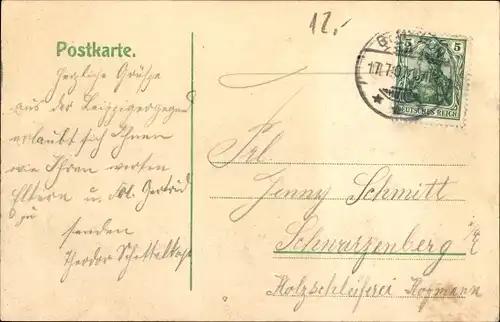 12.-
Postkarte.
Herzliche Grüße
aus der Leipzigergegend
erlaubt sich Ihnen
wie Ihren werten
Eltern u. Frl. Gertrud
zu
senden
Theodor
5 5
DEUTSCHES REICH
Frl.
Jenny Schmitt
Schwarzenberg i/E
Holzschleiferei